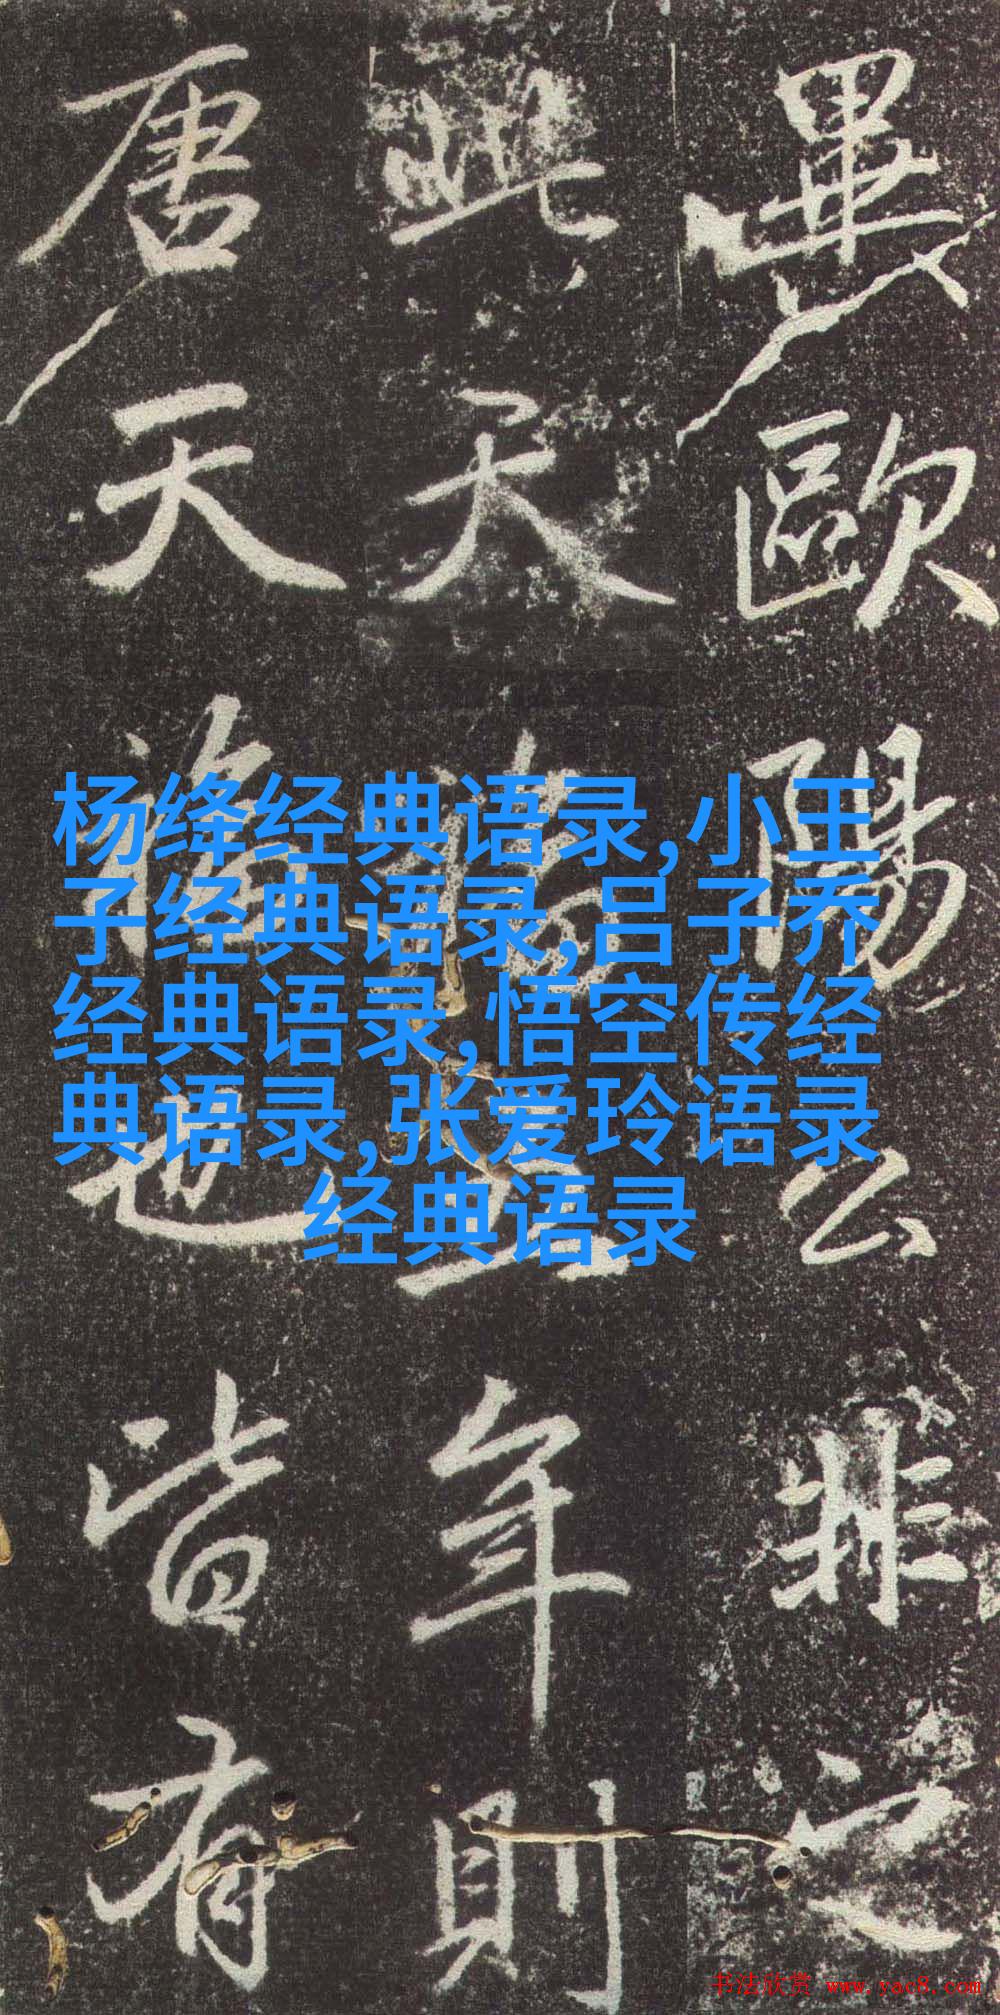 杨绛经典语录,小王
子经典语录,吕子乔
经典语录,悟空传经
典语录,张爱玲语录
经典语录
畢歐陽公非之
此天年則
唐天也皆有
书法欣赏 www.yac8.com